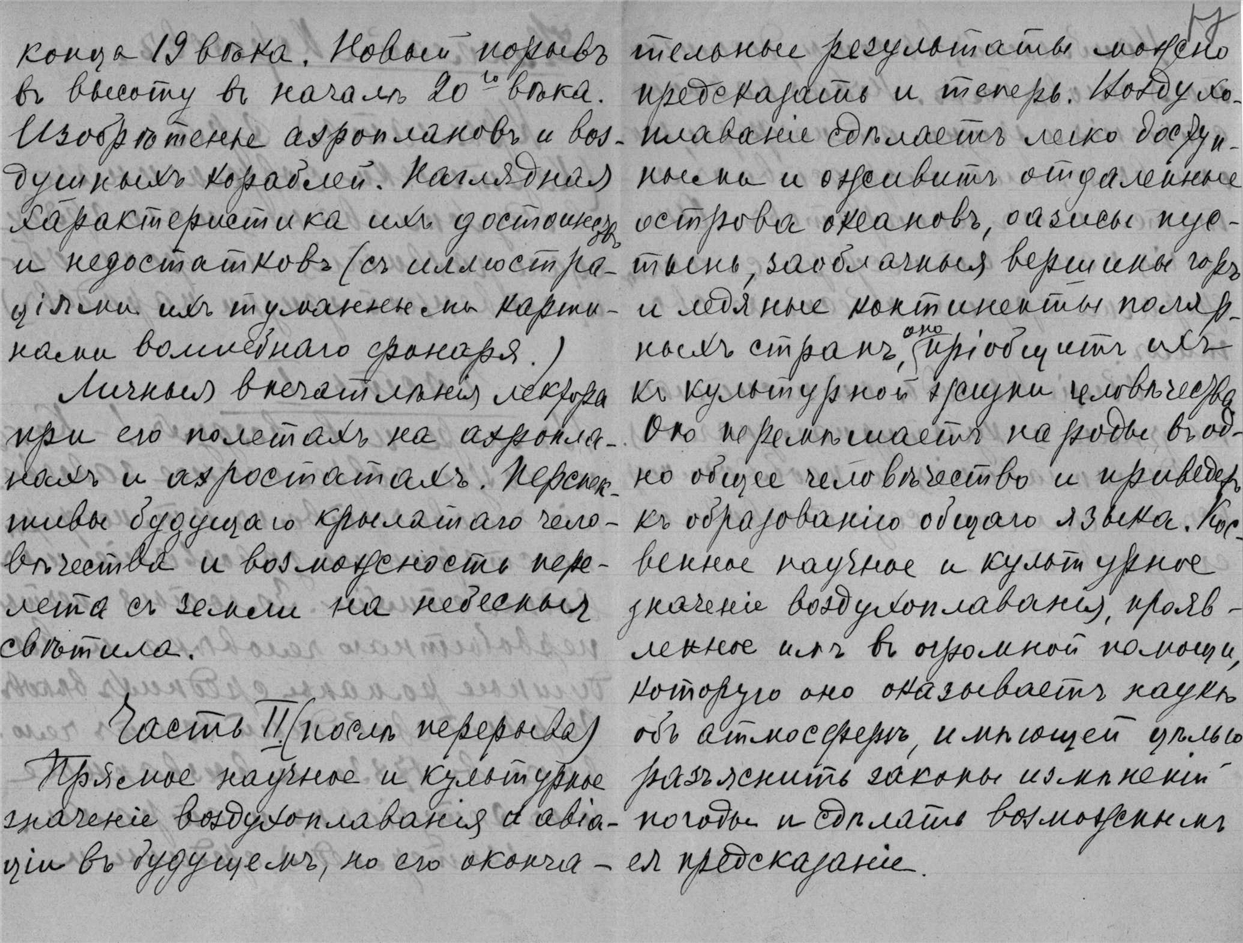 конца 19 вѣка. Новый порывъ
въ высоту въ началѣ 20го вѣка.
Изобрѣтенiе аэроплановъ и воз-
душныхъ кораблей. Наглядная
характеристика ихъ достоинствъ
и недостатковъ (съ иллюстра-
цiями ихъ туманными карти-
нами волшебнаго фонаря.)
Личныя впечатлѣнiя лектора
при его полетахъ на аэропла-
нахъ и аэростатахъ. Перспек-
тивы будущаго крылатаго чело-
вѣчества и возможность пере-
лета съ земли на небесныя
свѣтила.
Часть II (послѣ перерыва)
Прямое научное и культурное
значенiе воздухоплаванiя и авiа-
цiи въ будущемъ, но его оконча-
тельные результаты можно
предсказать и теперь. Воздухо-
плаванiе сдѣлаетъ легко доступ-
ными и оживитъ отдаленные
острова океановъ, оазисы пус-
тынь, заоблачныя вершины горъ
и ледяные континенты поляр-
ныхъ странъ, оно прiобщитъ ихъ
къ культурной жизни человѣчества
Оно перемѣшаетъ народы въ од-
но общее человѣчество и приведетъ
къ образованiю общаго языка. Кос-
венное научное и культурное
значенiе воздухоплаванiя, прояв-
ленное имъ въ огромной помощи,
которую оно оказываетъ наукѣ
объ атмосферѣ, имѣющей цѣлью
разъяснить законы измѣненiй
погоды и сдѣлать возможнымъ
ея предсказанiе.